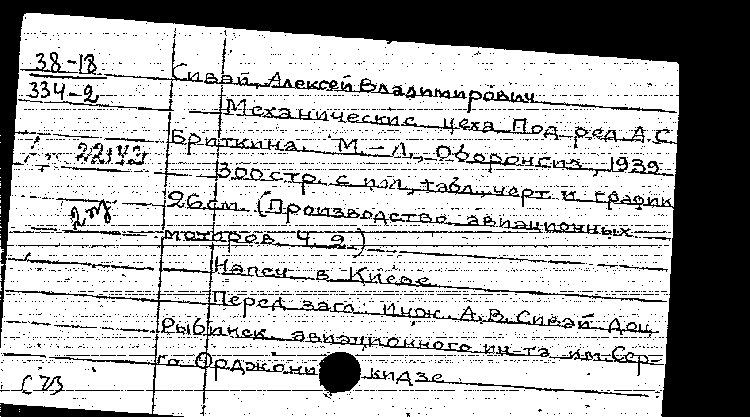 38-18
334-2
Сивай, Алексей Владимирович
Механические цеха Под ред А.С.
Бриткина. М.-Л., Оборонгиз, 1939
300стр. с ил., табл., черт. и график
26см. (Производство авиационных
моторов Ч. 2.)
Напеч. в Киеве
Перед загл: инж. А.В. Сивай Доц.
Рыбинск. авиационного ин-та им. Сер-
го Орджоникидзе